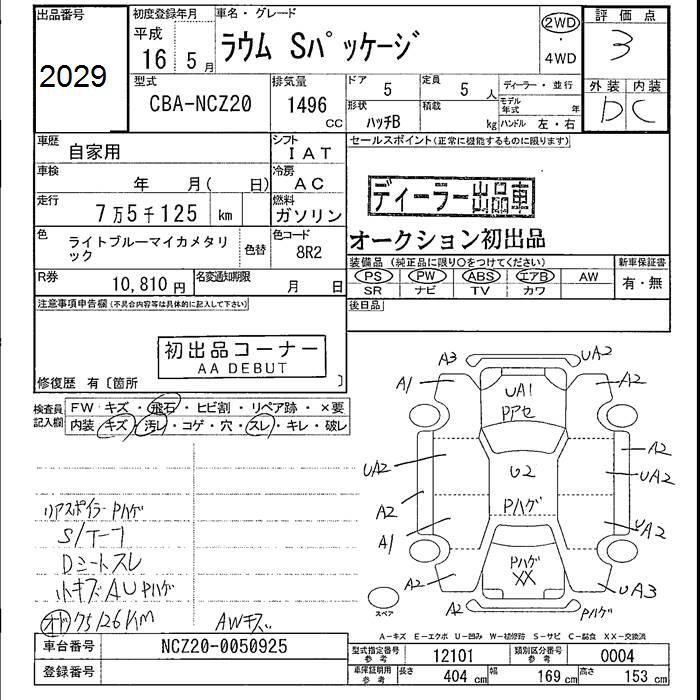 出品番号
2029
初度登録年月
平成
16 5月
車名・グレード
ラウム Sパッケージ
2WD
4WD
評価点
3
外装 内装
D C
型式
CBA-NCZ20
排気量
1496
CC
ドア
5
定員
5 人
形状
ハッチB
積載
kg
ディーラー・並行
モデル年式 年
ハンドル 左・右
車歴
自家用
シフト
IAT
セールスポイント(正常に機能するものに限ります)
車検
年 月( 日)
冷房
AC
ディーラー出品車
走行
7万5千125 km
燃料
ガソリン
オークション初出品
色
ライトブルーマイカメタリック
色替
色コード
8R2
装備品(純正品に限り○をつけてください)
PS PW ABS エアB AW
SR ナビ TV カワ
新車保証書
有・無
R券
10,810円
名変通知期限
月 日
後日品
注意事項申告欄(不具合内容等は具体的に記入して下さい)
初出品コーナー
AA DEBUT
修復歴 有〔箇所 〕
検査員記入欄
FW キズ・飛石・ヒビ割・リペア跡・×要
内装 キズ・汚レ・コゲ・穴・スレ・キレ・破レ
リアスポイラーPハゲ
S/T-7
Dシートスレ
小キズAUPハゲ
オド 75126KM
AWキズ
A3 UA2
A1 A2
UA1
Pアセ
UA2 U2 A2
UA2
A2 Pハゲ
A1 UA2
A2 Pハゲ
XX UA3
A2 Pハゲ
スペア
A-キズ E-エクボ U-凹み W-補修跡 S-サビ C-腐食 XX-交換済
車台番号
NCZ20-0050925
登録番号
型式指定番号
参考
12101
類別区分番号
参考
0004
車庫証明用
参考
長さ
404 cm
幅
169 cm
高さ
153 cm